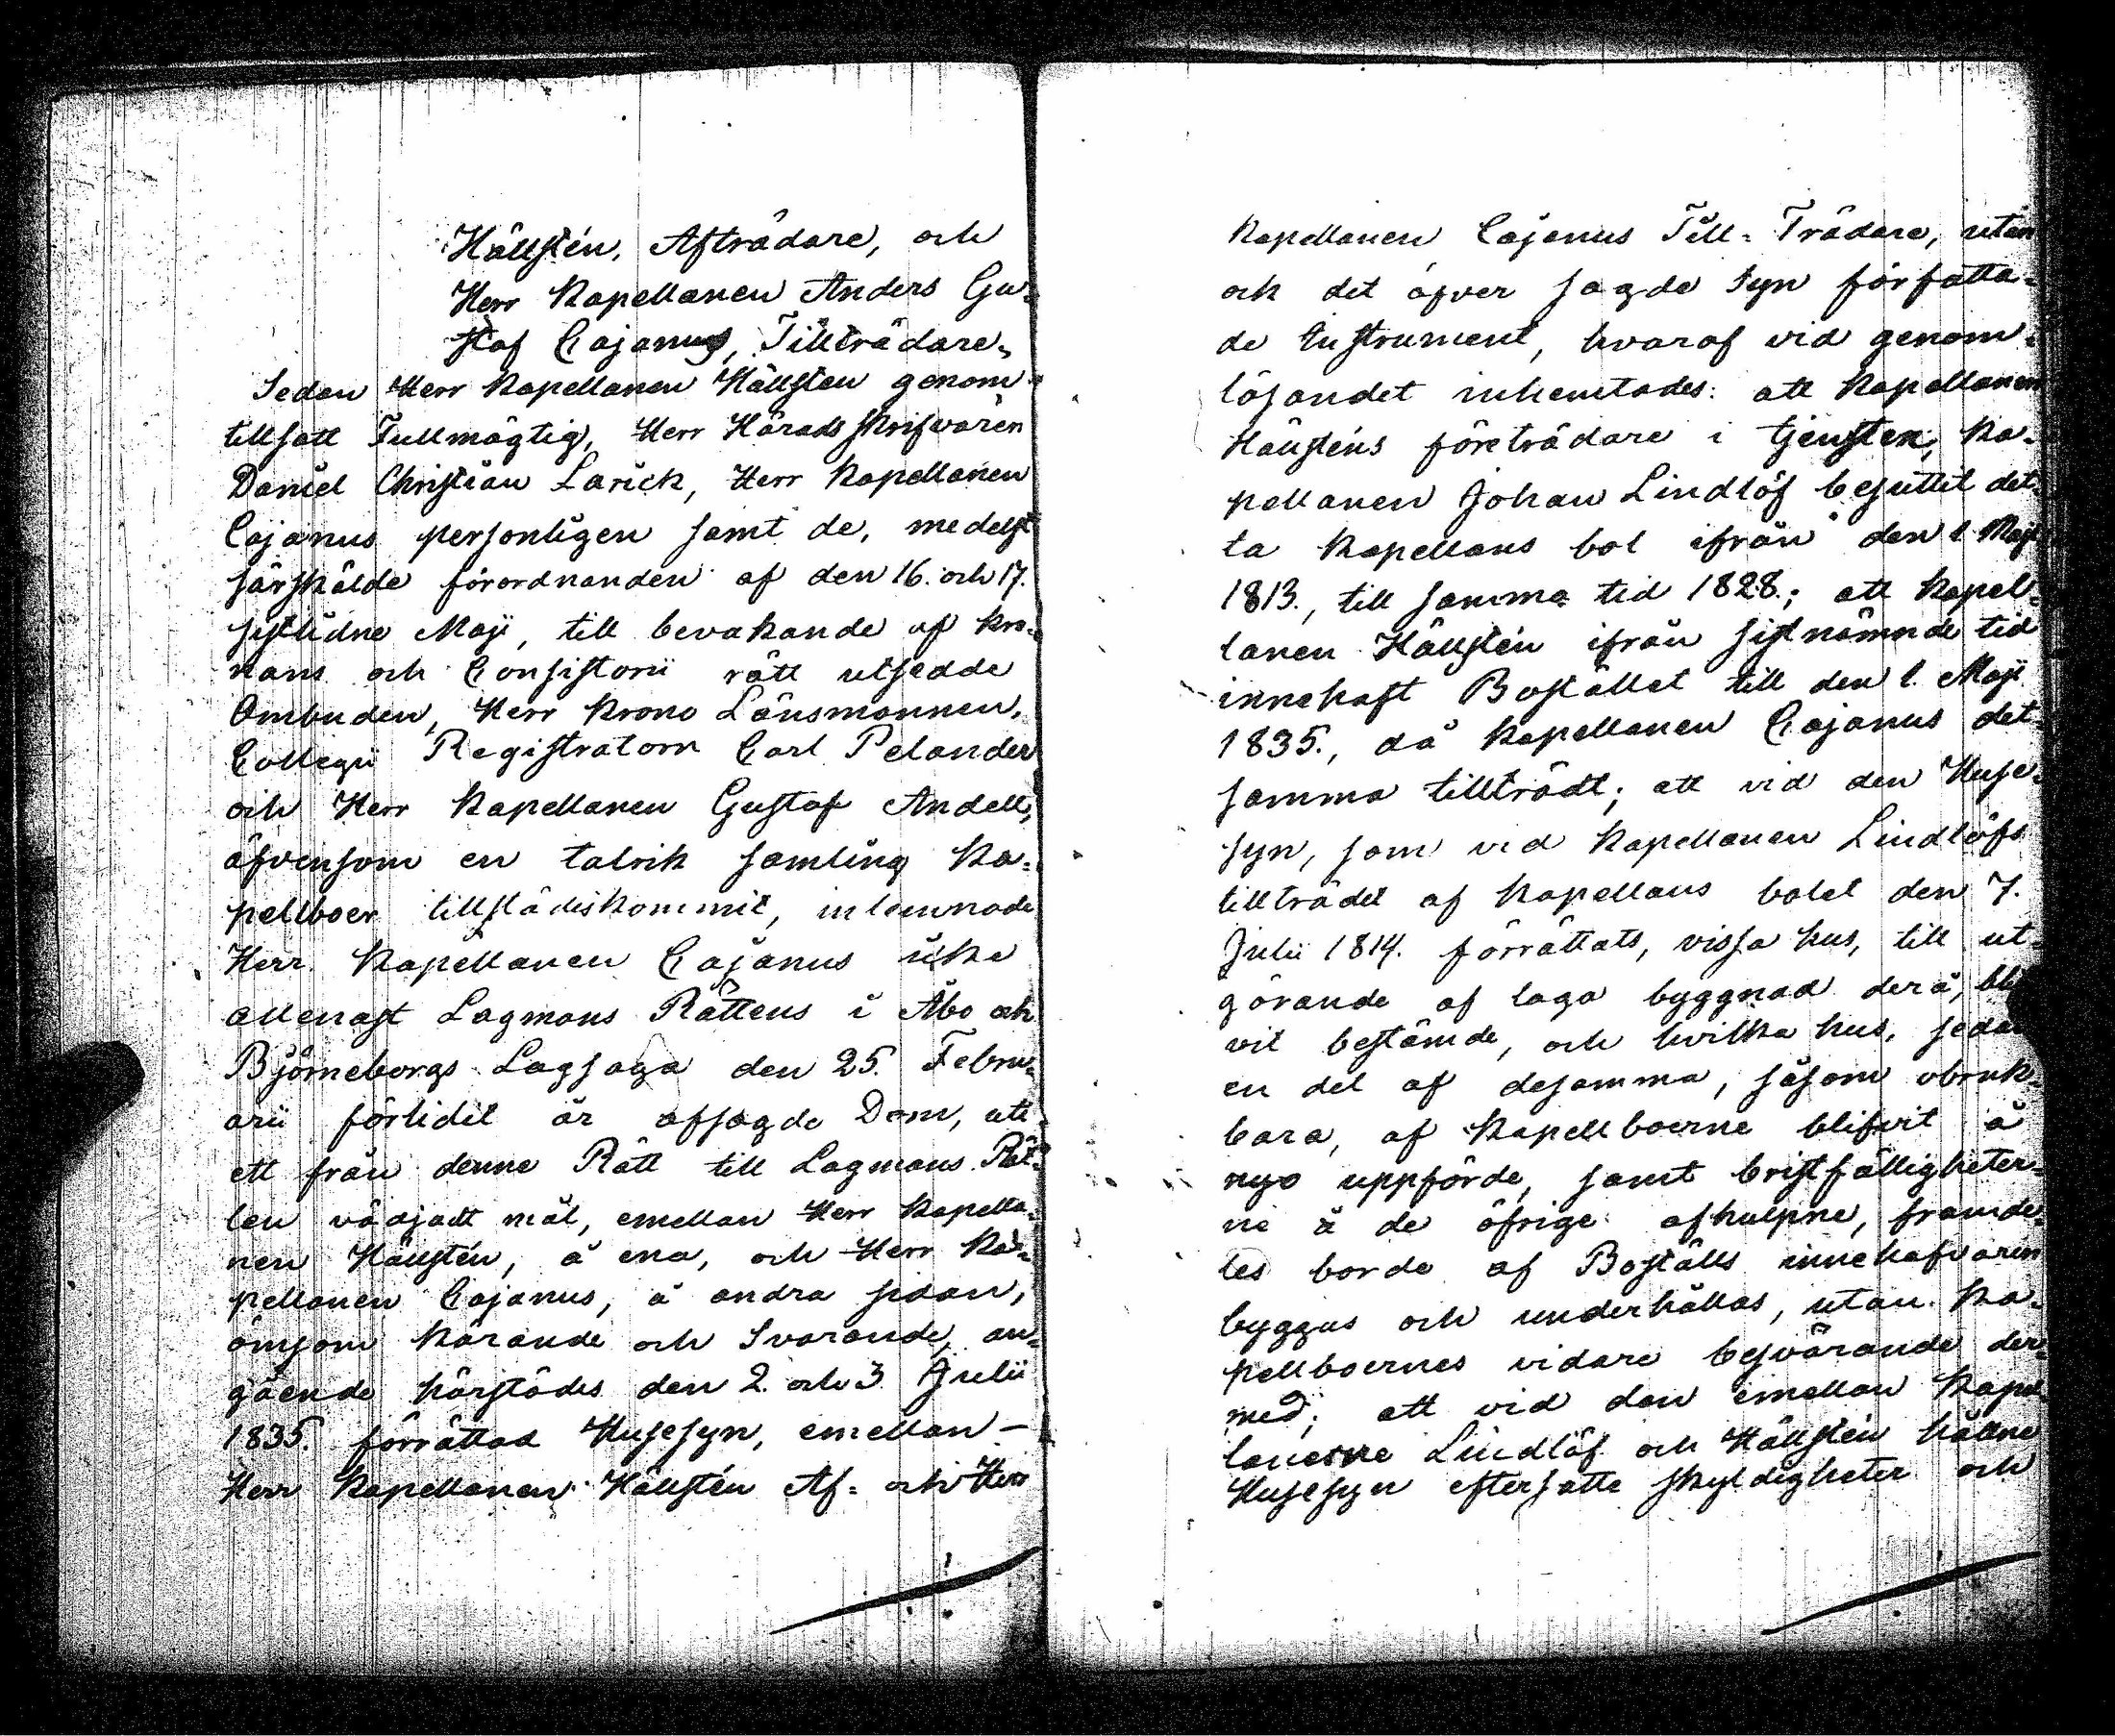 Hällstén, Afträdare, och
Herr Kapellanen Anders Gu-
staf Cajanus, Tillträdare,
Sedan Herr Kapellanen Hällsten genom
tillsatt Fullmägtig, Herr Häradsskrifvaren
Daniel Christian Larick, Herr Kapellanen
Cajanus personligen samt de, medelst
särskälde förordnanden af den 16. och 17.
sistlidne Maji, till bevakande af kro-
nans och Consistorii rätt utsedde
Ombuden, Herr Krono Länsmannen,
Collegii Registratorn Carl Pelander
och Herr Kapellanen Gustaf Andell,
äfvensom en talrik samling ka-
pellboer tillstädiskommit, inlemnade
Herr Kapellanen Cajanus icke
allenast Lagmans Rättens i Åbo och
Björneborgs Lagsaga den 25. Febru-
arii förlidit år afsagde Dom, uti
ett från denne Rätt till Lagmans Rät-
ten vädjadt mål, emellan Herr Kapella-
nen Hällstén, å ena, och Herr Ka-
pellanen Cajanus, å andra sidan,
ömsom Kärande och Svarande, an-
gående härstädes den 2. och 3 Julii
1835. förrättad Husesyn, emellan –
Herr Kapellanen Hällstén Af- och Herr
Kapellanen Cajanus Till-Trädare, utan
och det öfver sagde syn författa-
de Instrument, hvaraf vid genom-
läsandet inhemtades: att Kapellanen
Hällsténs företrädare i tjensten, Ka-
pellanen Johan Lindlöf besuttit det-
ta Kapellans bol ifrån den 1 Maji
1813., till samma tid 1828.; att Kapel-
lanen Hällstén ifrån sistnämnde tid
innehaft Bostället till den 1. Maji
1835., då Kapellanen Cajanus det-
samma tillträdt; att vid den Huse-
syn, som vid Kapellanen Lindlöfs
tillträdet af Kapellans bolet den 7.
Julii 1814. förrättats, vissa hus, till ut-
görande af laga byggnad derå, bli-
vit bestämde, och hvilka hus, sedan
en del af desamma, såsom obruk-
bara, af Kapellboerne blifvit å
nyo uppförde, samt bristfälligheter-
ne å de öfrige afhulpne, framde-
les borde af Boställs innehafvaren
byggas och underhållas, utan Ka-
pellboernes vidare besvärande der-
med; att vid den emellan Kapel-
lanerne Lindlöf och Hällstén hållne
Husesyn eftersatte skyldigheter och